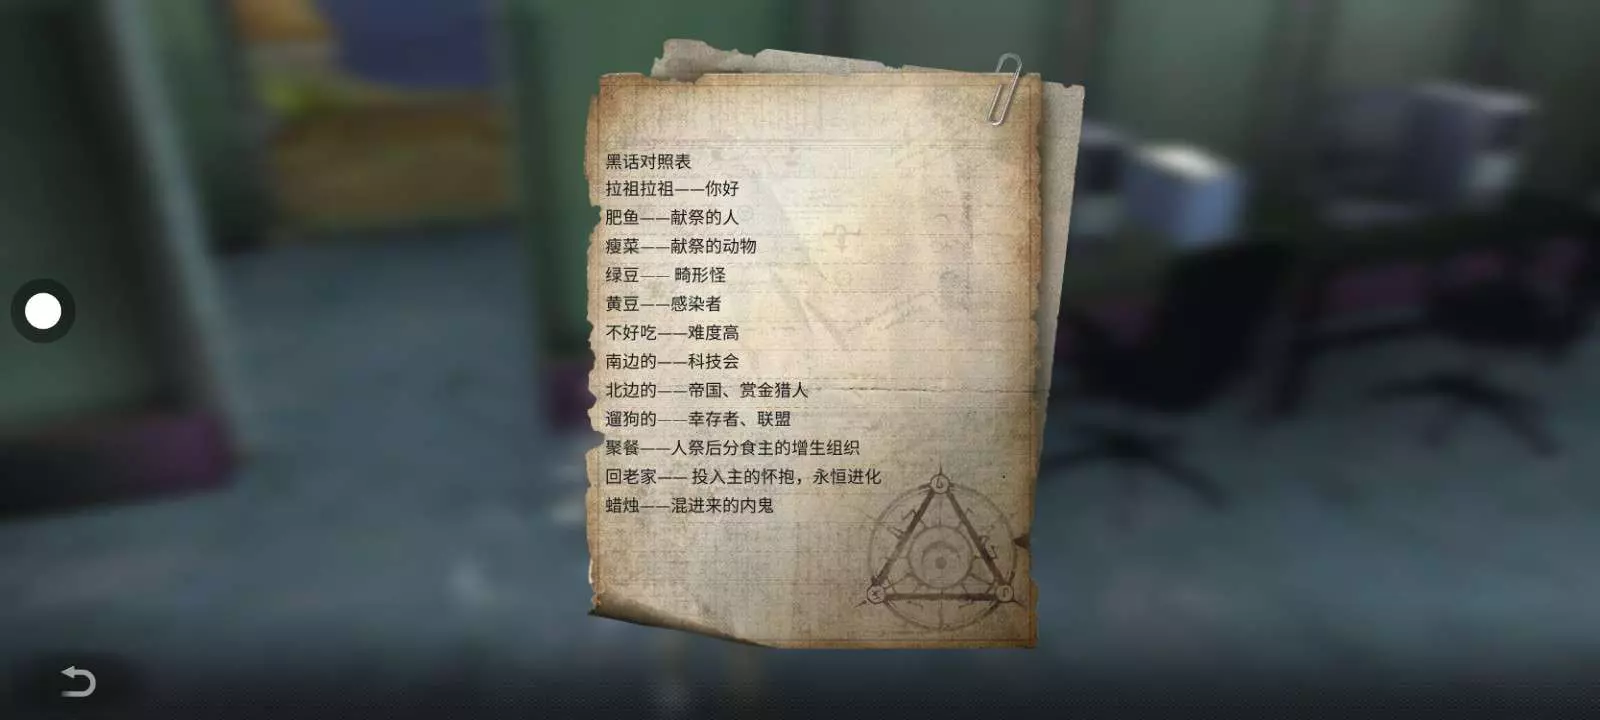 黑话对照表
拉祖拉祖——你好
肥鱼——献祭的人
瘦菜——献祭的动物
绿豆—— 畸形怪
黄豆——感染者
不好吃——难度高
南边的——科技会
北边的——帝国、赏金猎人
遛狗的——幸存者、联盟
聚餐——人祭后分食主的增生组织
回老家—— 投入主的怀抱，永恒进化
蜡烛——混进来的内鬼